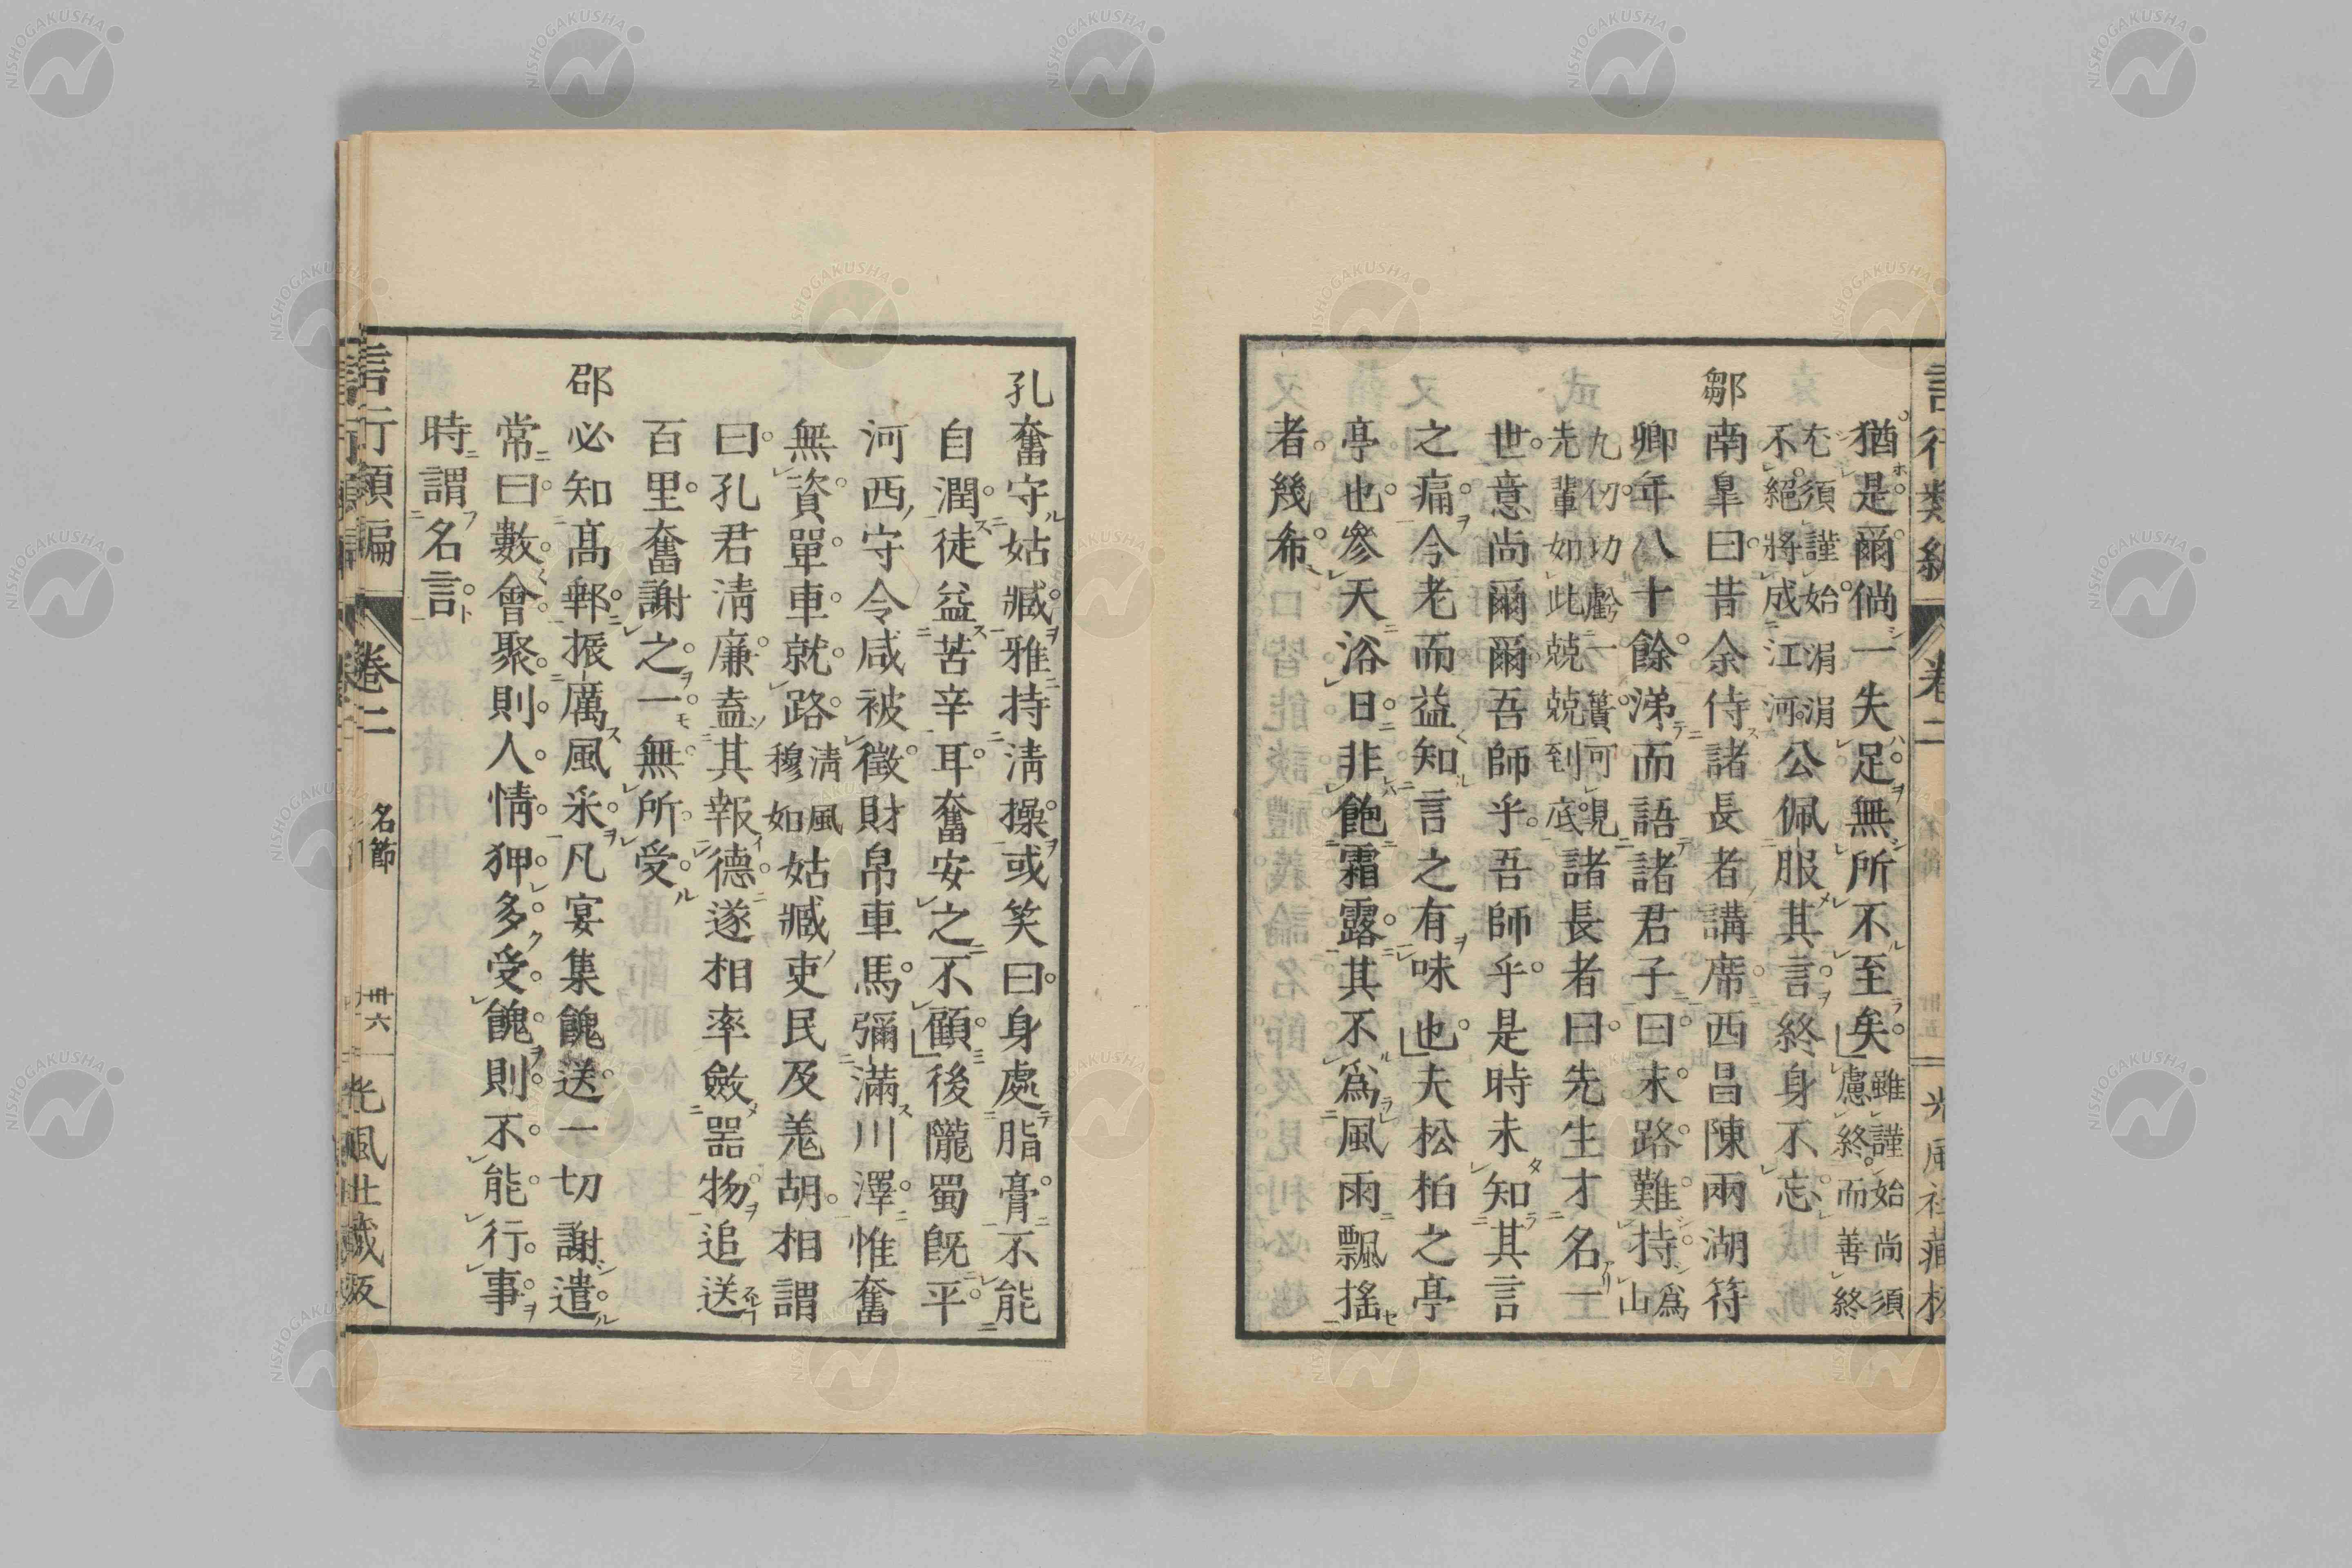 猶是爾倘一失足無所不至矣雖謹始尚須慮終而善終
尤須謹始涓涓不絕將成江河公佩服其言終身不忘
鄒南臯曰昔余侍諸長者講席西昌陳兩湖符
卿年八十餘涕而語諸君子曰末路難持爲山
九仞功虧一簣可見先輩如此兢兢到底諸長者曰先生才名一
世意尚爾爾吾師乎吾師乎是時未知其言
之痛今老而益知言之有味也夫松柏之亭
亭也參天浴日非飽霜露其不爲風雨飄搖
者幾希
孔奮守姑臧雅持淸操或笑曰身處脂膏不能
自潤徒益苦辛耳奮安之不顧後隴蜀旣平
河西守令咸被徵財帛車馬彌滿川澤惟奮
無資單車就路淸風穆如姑臧吏民及羗胡相謂
曰孔君淸廉盍其報德遂相率斂噐物追送
百里奮謝之一無所受
邵必知高郵振厲風采凡宴集餽送一切謝遣
常曰數會聚則人情狎多受餽則不能行事
時謂名言
言行類編 卷二 名節 卅六 光風社藏版
NISHOGAKUSHA